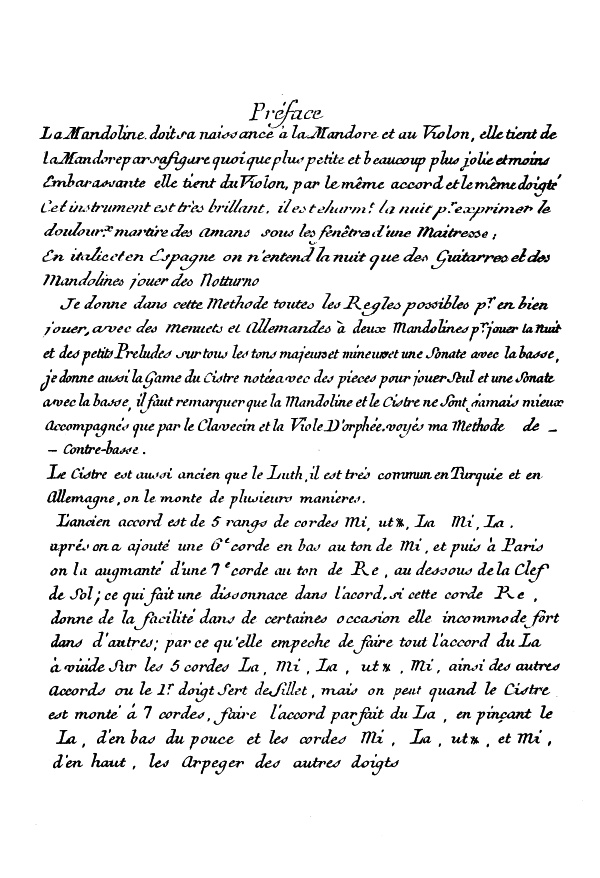 Préface
La Mandoline doit sa naissance à la Mandore et au Violon, elle tient de
la Mandore par sa figure quoi que plus petite et beaucoup plus jolie et moins
Embarassante elle tient du Violon, par le même accord et le même doigté
Cet instrument est très brillant, il est charmt. la nuit pr. exprimer le
doulourx. martire des amans sous les fenêtres d'une Maitresse;
En italie et en Espagne on n'entend la nuit que des Guitarres et des
Mandolines jouer des Notturno
Je donne dans cette Methode toutes les Regles possibles pr. en bien
jouer, avec des menuets et Allemandes à deux Mandolines pr. jouer la nuit
et des petits Preludes sur tous les tons majeurs et mineurs et une Sonate avec la basse,
je donne aussi la Game du Cistre notée avec des pieces pour jouer Seul et une Sonate
avec la basse, il faut remarquer que la Mandoline et le Cistre ne Sont jamais mieux
Accompagnés que par le Clavecin et la Viole D'orphée. voyés ma Methode de –
– Contre-basse.
Le Cistre est aussi ancien que le Luth, il est trés commun en Turquie et en
Allemagne, on le monte de plusieurs manieres.
L'ancien accord est de 5 rangs de cordes Mi, ut♯, La Mi, La.
aprés on a ajouté une 6e corde en bas au ton de Mi, et puis à Paris
on la augmanté d'une 7e corde au ton de Re, au dessous de la Clef
de Sol; ce qui fait une dissonnace dans l'acord, si cette corde Re,
donne de la facilité dans de certaines occasion elle incommode fort
dans d'autres; par ce qu'elle empeche de faire tout l'accord du La
à vuide Sur les 5 cordes La, Mi, La, ut♯, Mi, ainsi des autres
Accords ou le 1r doigt Sert de Sillet, mais on peut quand le Cistre
est monté á 7 cordes, faire l'accord parfait du La, en pinçant le
La, d'en bas du pouce et les cordes Mi, La, ut♯, et Mi,
d'en haut, les Arpeger des autres doigts